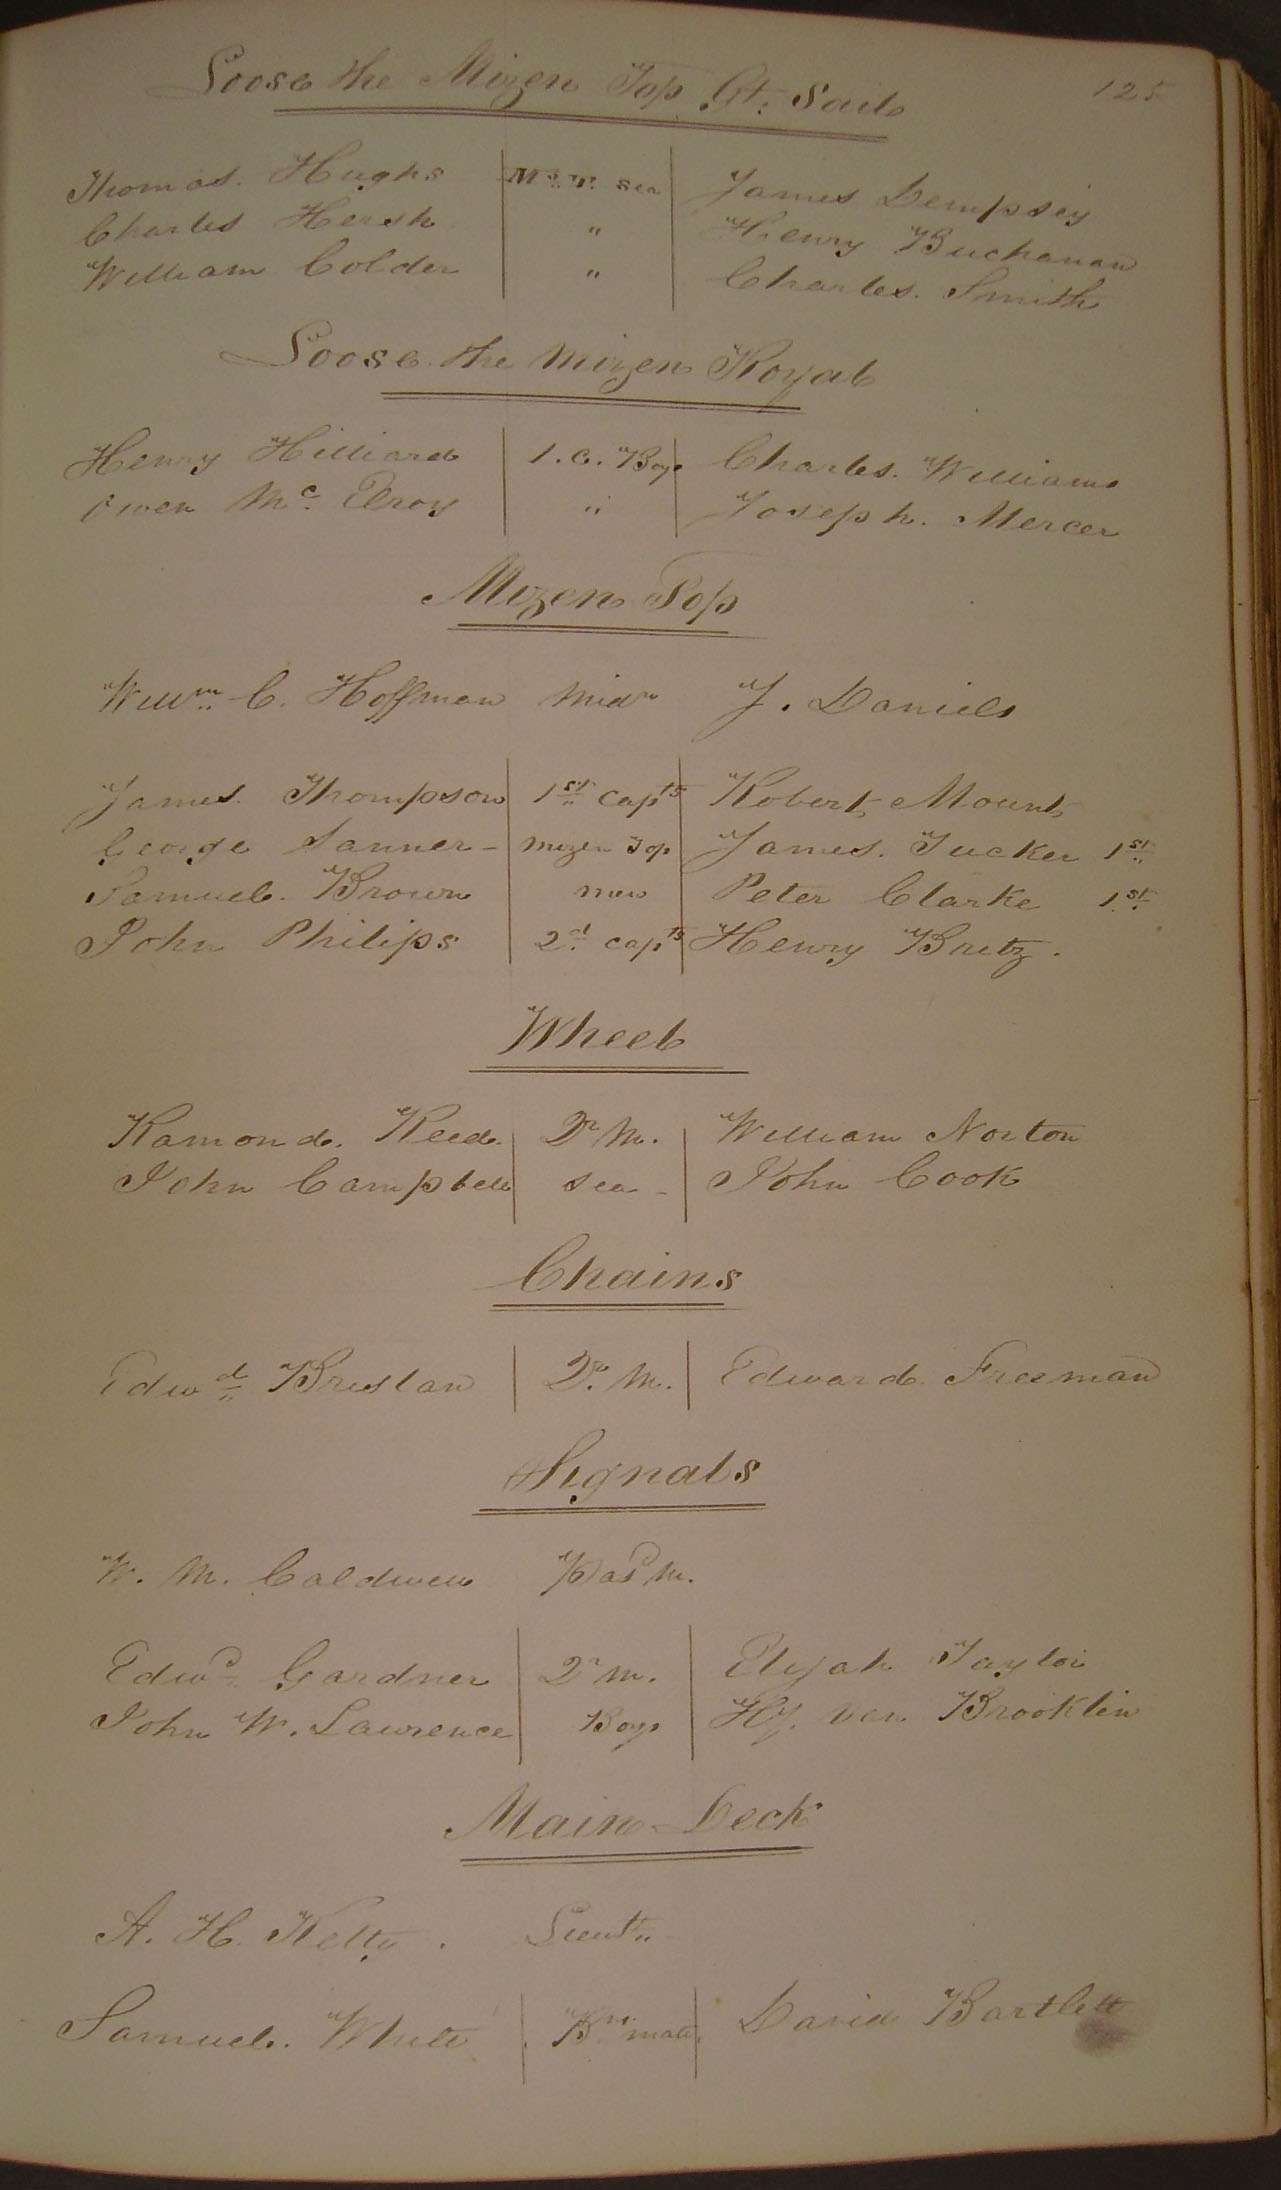 125
Loose the Mizen Top Gt: Sail
Thomas. Hughs M.T. sea James Dempsey
Charles Hersh " Henry Buchanan
William Colder " Charles. Smith
Loose the Mizen Royal
Henry Hilliard 1.C. Boy Charles. Williams
Owen Mc Elroy " Joseph. Mercer
Mizen Top
Willm C. Hoffman Midn J. Daniels
James. Thompson 1st Capts Robert Mount
George Sanner - mizen Top James. Tucker 1st
Samuel. Brown men Peter Clarke 1st
John Philips 2d Capts Henry Britz.
Wheel
Ramond. Reed. Qr M. William Norton
John Campbell sea - John Cook
Chains
Edwd Breslan Qr. M. Edward Freeman
Signals
W. M. Caldwell Pasd M.
Edwd Gardner Qr M. Elijah Taylor
John W. Lawrence Boys Hy. Van Brooklin
Main-Deck
A. H. Kelty. Lieut
Samuel. White Bn mate David Bartlett